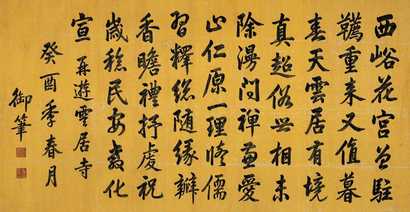 西峪花宮曾駐
韉重來又值暮
春天雲居有境
真超俗世相未
除漫問禪兼愛
仁原一理修儒
習釋總隨緣瓣
香瞻禮抒虔祝
歲稔民安教化
宣 再遊雲居寺
癸酉季春月
御筆